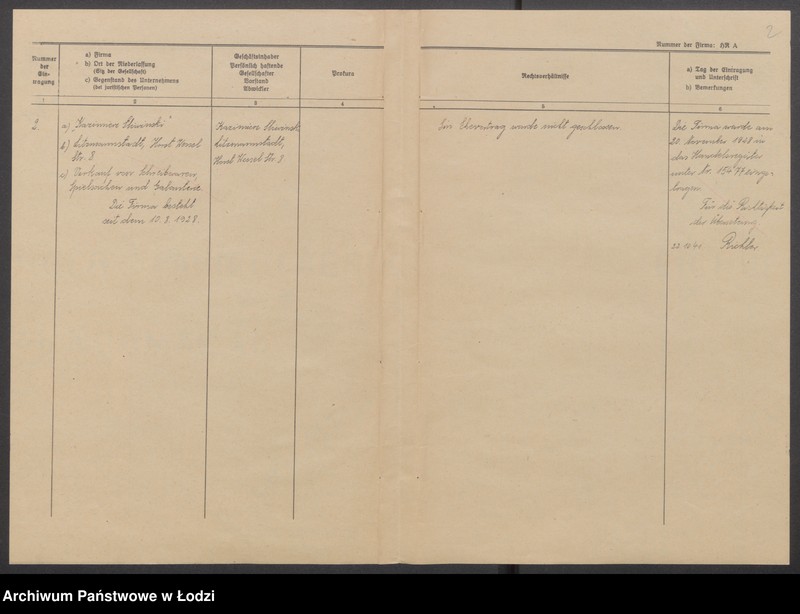 2
Nummer der Firma: HR A
Nummer
der
Ein-
tragung
a) Firma
b) Ort der Niederlassung
(Sitz der Gesellschaft)
c) Gegenstand des Unternehmens
(bei juristischen Personen)
Geschäftsinhaber
Persönlich haftende
Gesellschafter
Vorstand
Abwickler
Prokura
Rechtsverhältnisse
a) Tag der Eintragung
und Unterschrift
b) Bemerkungen
1
2
3
4
5
6
a) "Kazimierz
b) Litzmannstadt, Horst Wessel
Str. 8
c) Verkauf von Schreibwaren,
Spielwaren und Galanterie.
Die Firma besteht
seit dem 10.8.1928.
Kazimierz
Litzmannstadt,
Horst Wessel Str. 8
Ein Ehevertrag wurde nicht geschlossen
Die Firma wurde am
20. November 1928 in
das Handelsregister
unter Nr. einge-
tragen.
Für die Richtigkeit
der Übersetzung
22.10.41
Archiwum Państwowe w Łodzi